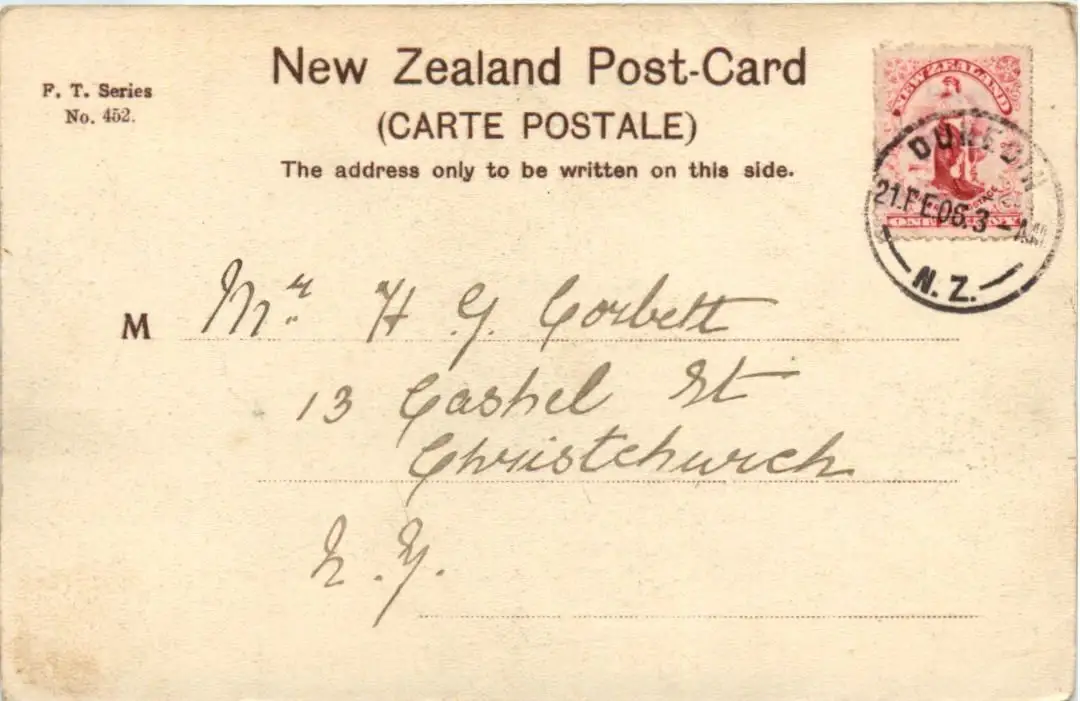 F. T. Series
No. 452.
New Zealand Post-Card
(CARTE POSTALE)
The address only to be written on this side.
NEW ZEALAND
ONE PENNY
DUNEDIN
21.FE06.3-AM
N.Z.
M Mr. H G Corbett
13 Cashel St
Christchurch
N.Z.